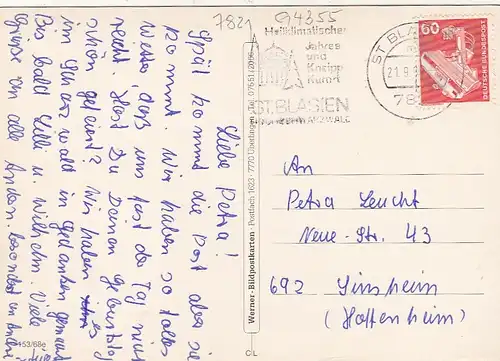 7821 94355
Heilklimatischer
Jahres
und
Kneipp
Kurort
ST. BLASIEN
ST. BLA
21.9.
78
60
DEUTSCHE BUNDESPOST
Liebe Petra!
Spät kommt die Post aber sie
kommt. Wir haben so tolles
Wetter, dass uns fast der Tag nicht
reicht. Hast Du Deinen Geburtstag
schön gefeiert? Wir haben es
im Schwarzwald in Gedanken gemacht
Bis bald Lilli u. Wilhelm. Viele
Grüsse von alle
Werner-Bildpostkarten · Postfach 1623 · 7770 Überlingen, Tel. 07551/2096
153/68e
CL
An
Petra Leucht
Neue-Str. 43
692 Sinsheim
(Hoffenheim)